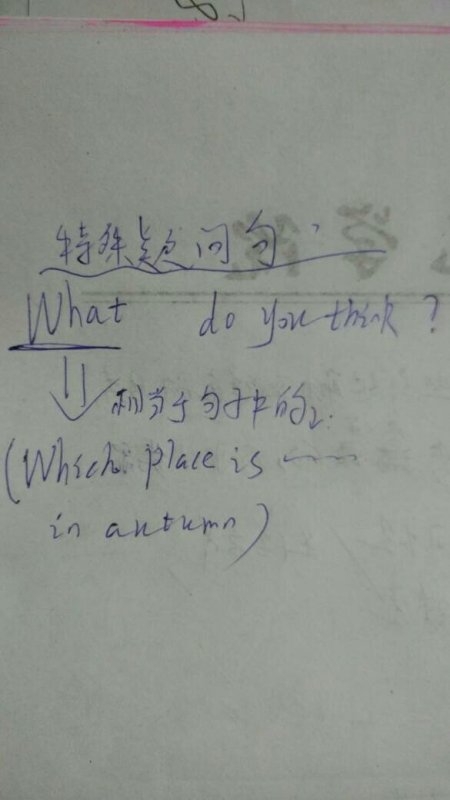 特殊疑问句
What do you think?
相当于句子中的
(Which place is ……
in autumn)